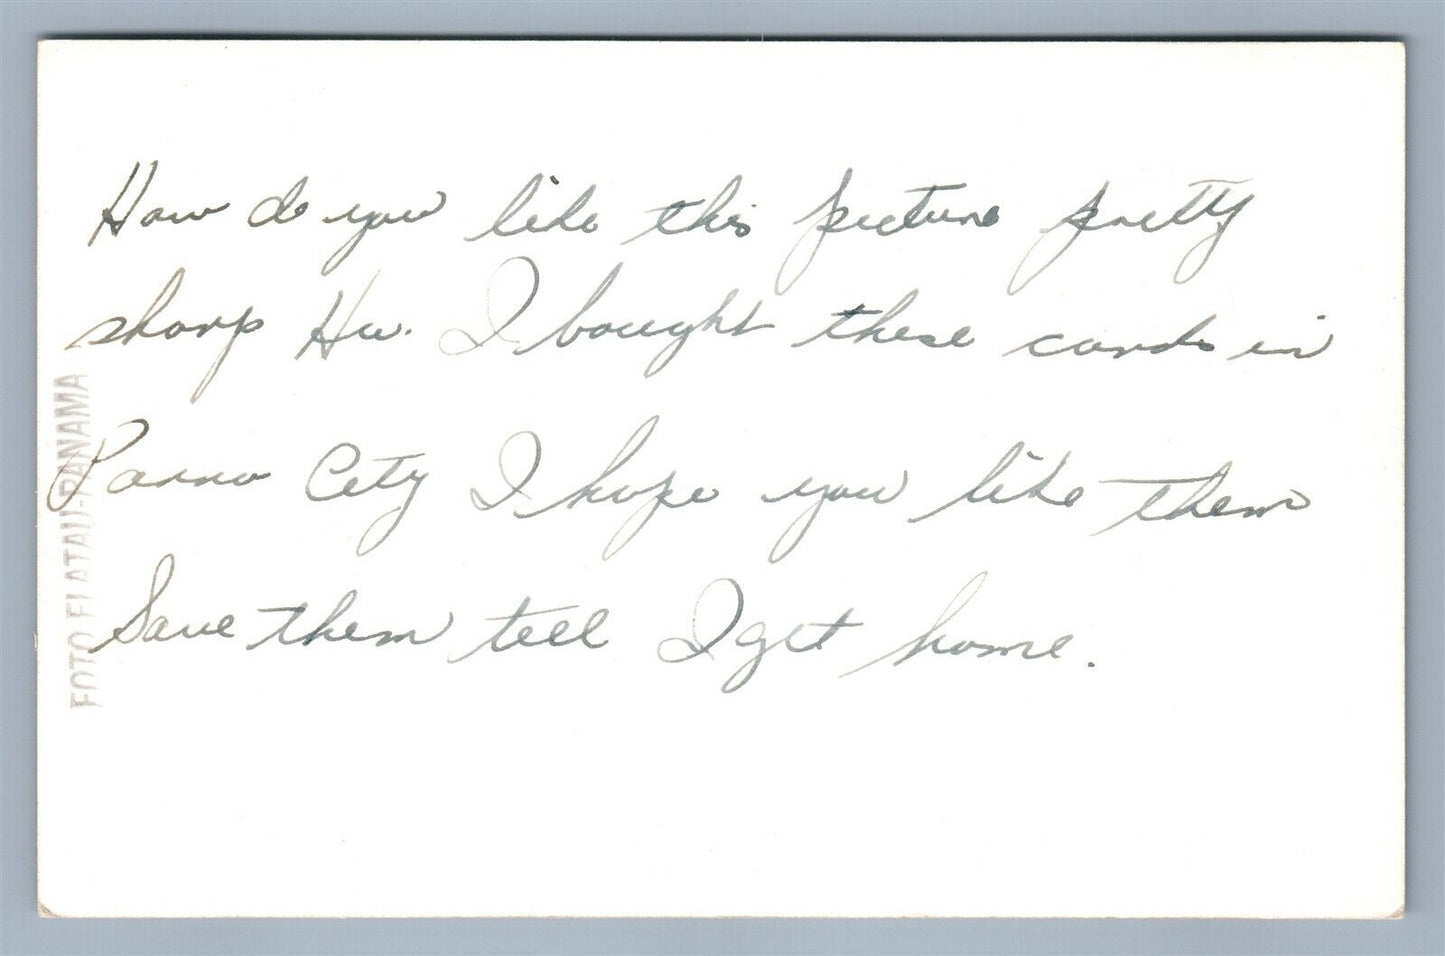 How do you like this picture pretty
sharp Hu. I bought these cards in
Panna City I hope you like them
Save them tell I get home.
FOTO FLATAU-PANAMA